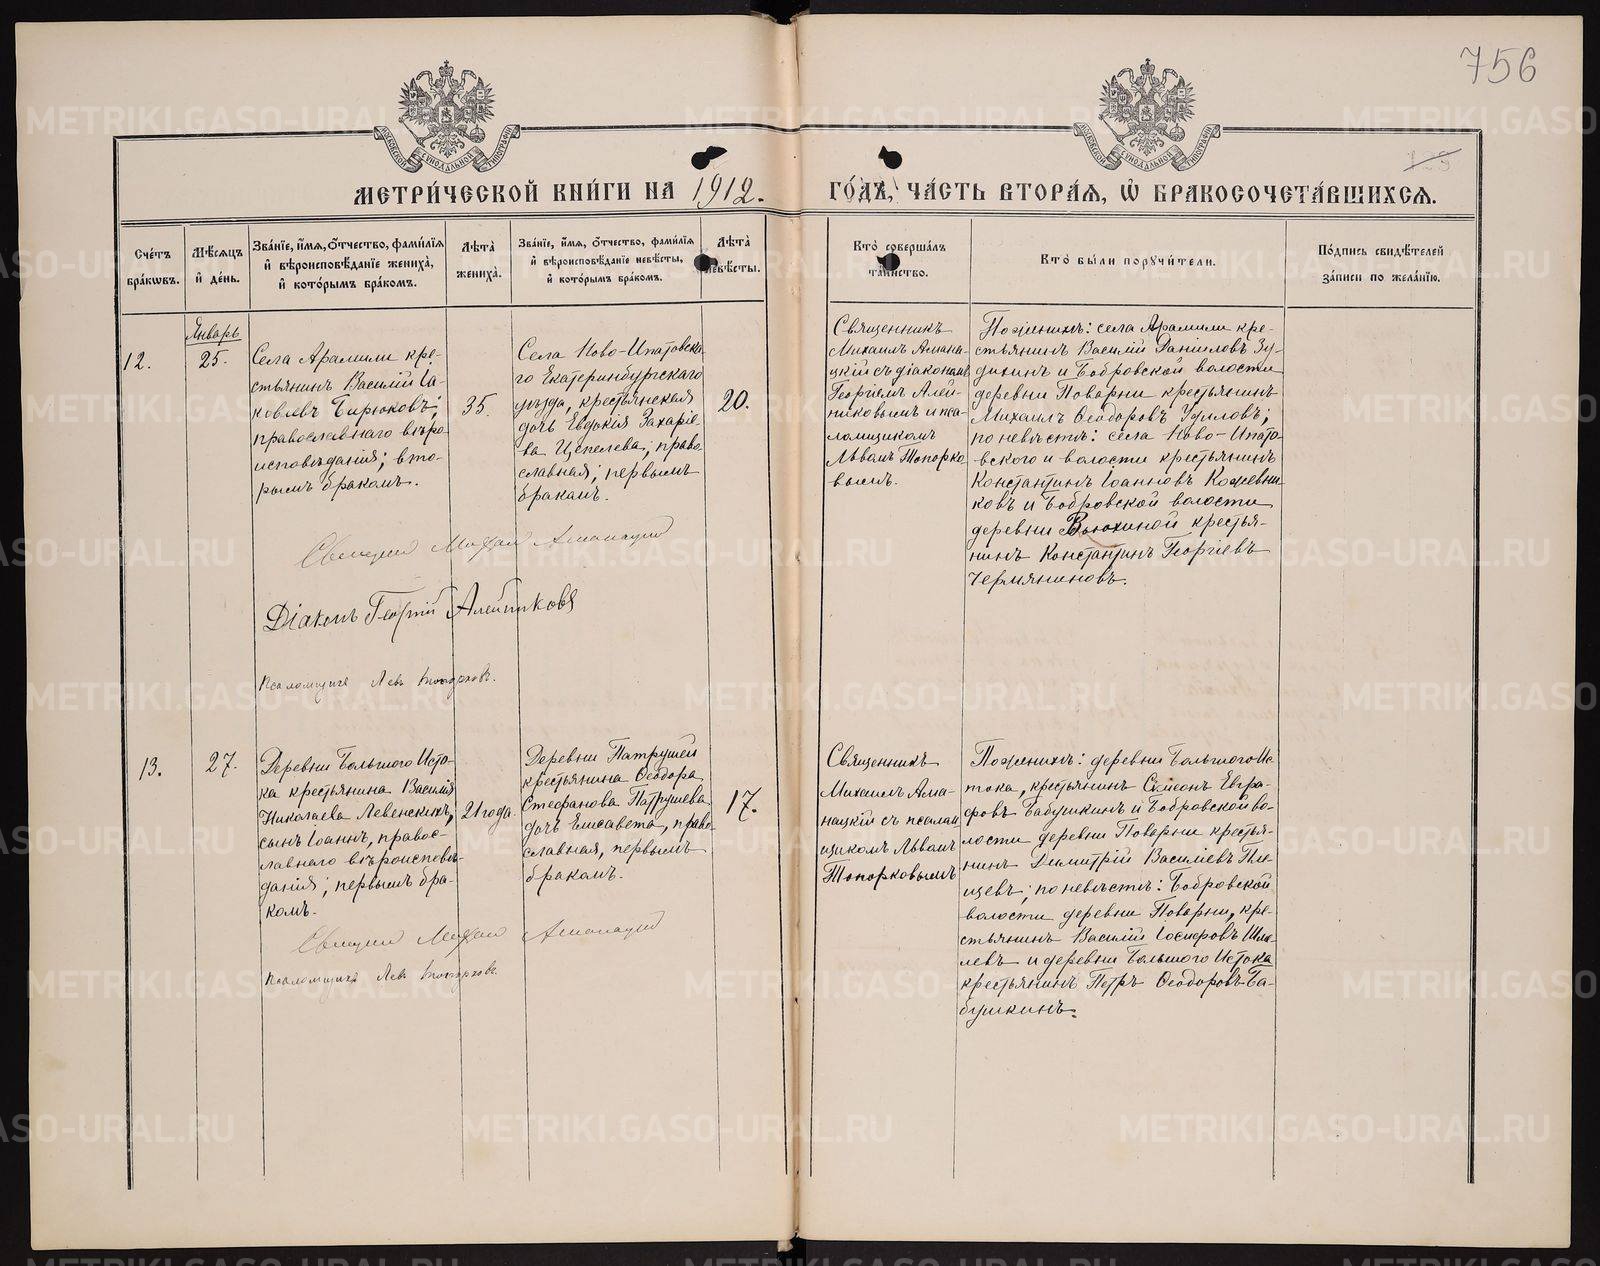 756
МОСКОВСКОЙ СѴНОДАЛЬНОЙ ТИПОГРАФІИ
МОСКОВСКОЙ СѴНОДАЛЬНОЙ ТИПОГРАФІИ
МЕТРИ́ЧЕСКОЙ КНИ́ГИ НА 1912.
ГО́ДЪ, ЧА́СТЬ ВТОРА́Я, Ѡ БРАКОСОЧЕТА́ВШИХСЯ.
Сче́тъ
бра́ковъ.
Мѣ́сяцъ
и де́нь.
Зва́ніе, и́мя, о́тчество, фами́лія
и вѣроисповѣ́даніе жениха̀,
и кото́рымъ бра́комъ.
Лѣта̀
жениха̀.
Зва́ніе, и́мя, о́тчество, фами́лія
и вѣроисповѣ́даніе невѣ́сты,
и кото́рымъ бра́комъ.
Лѣта̀
невѣ́сты.
Кто̀ соверша́лъ
та́инство.
Кто̀ бы́ли поручи́тели.
По́дпись свидѣ́телей
за́писи по жела́нію.
12.
Январь
25.
Села Арамили кре-
стьянинъ Василій Іа-
ковлевъ Бирюковъ;
православнаго вѣро
исповѣданія; вто-
рымъ бракомъ.
35.
Села Ново-Ипатовска-
го Екатеринбургскаго
уѣзда, крестьянская
дочь Евдокія Захаріе-
ва Цепелева; право
славная; первымъ
бракомъ.
20.
Священникъ
Михаилъ Амана-
цкій съ діакономъ
Георгіемъ Алей-
никовымъ и пса-
ломщикомъ
Львомъ Топорко
вымъ.
По женихѣ: села Арамили кре-
стьянинъ Василій Даніиловъ Зу-
дихинъ и Бобровской волости
деревни Поварни крестьянинъ
Михаилъ Ѳеодоровъ
по невѣстѣ: села Ново-Ипато-
вского и волости крестьянинъ
Константинъ Іоанновъ Кожевни-
ковъ и Бобровской волости
деревни Вьюхиной крестья-
нинъ Константинъ Георгіевъ
Чермяниновъ.
Священникъ Михаилъ Аманацкій
Діаконъ Георгій Алейниковъ
Псаломщикъ Левъ Топорковъ.
13.
27.
Деревни Большого Исто-
ка крестьянина Василія
Николаева Левенскихъ,
сынъ Іоаннъ, правос-
лавнаго вѣроисповѣ-
данія; первымъ бра-
комъ.
21 года.
Деревни Патрушей
крестьянина Ѳеодора
Стефанова Патрушева
дочь Елисавета, право-
славная, первымъ
бракомъ.
17.
Священникъ
Михаилъ Ама-
нацкій съ псалом
щикомъ Львомъ
Топорковымъ
По женихѣ: деревни Большого Ис
тока, крестьянинъ Симеонъ Евгра-
фовъ Бабушкинъ и Бобровской во-
лости деревни Поварни крестья-
нинъ Димитрій Василіевъ
щевъ; по невѣстѣ: Бобровской
волости деревни Поварни, кре-
стьянинъ Василій Іосифовъ
и деревни Большого Истока
крестьянинъ Петръ Ѳеодоровъ Ба-
бушкинъ.
Священникъ Михаилъ Аманацкій
Псаломщикъ Левъ Топорковъ.
METRIKI.GASO-URAL.RU